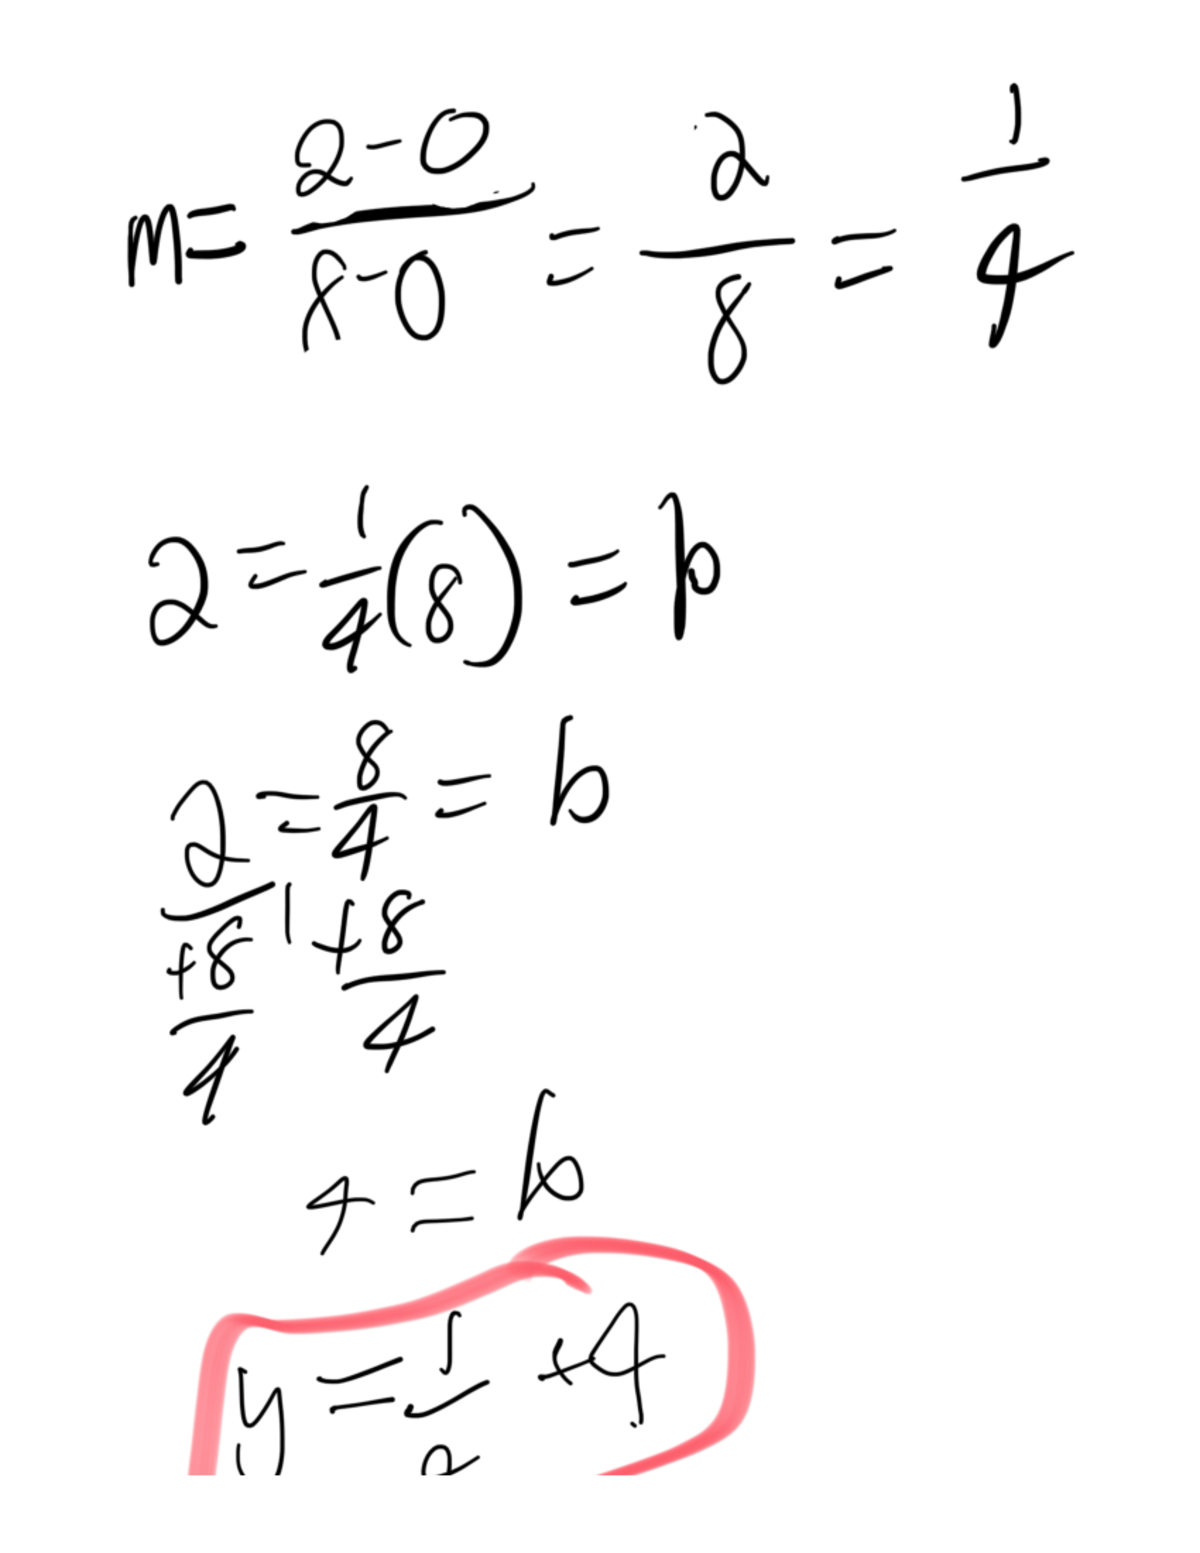 m= 2-0/8-0 = 2/8 = 1/4
2 = 1/4 (8) = b
2 = 8/4 = b
+8/4 | +8/4
4 = b
y = 1/ +4